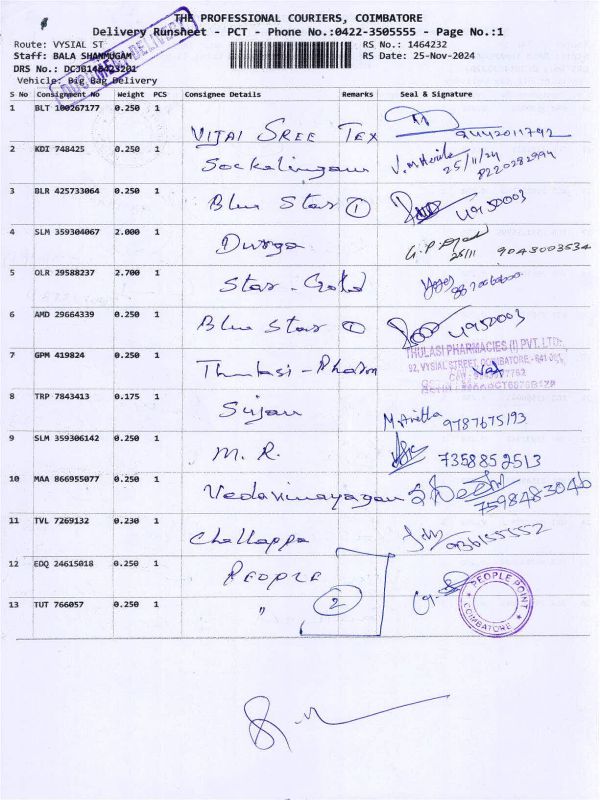 THE PROFESSIONAL COURIERS, COIMBATORE
Delivery Runsheet - PCT - Phone No.:0422-3505555 - Page No.:1
Route: VYSIAL ST RS No.: 1464232
Staff: BALA SHANMUGAM RS Date: 25-Nov-2024
DRS No.:
Vehicle: Big Bag Delivery
S No Consignment No Weight PCS Consignee Details Remarks Seal & Signature
1 BLT 100267177 0.250 1
VIJAI SREE TEX 9442011792
2 KDI 748425 0.250 1
Sockalingam 25/11/24
8220282994
3 BLR 425733064 0.250 1
Blue Star 1 4950003
4 SLM 359304067 2.000 1
Durga 25/11 9043003534
5 OLR 29588237 2.700 1
Star - Gold
6 AMD 29664339 0.250 1
Blue Star 1 4950003
7 GPM 419824 0.250 1
THULASI PHARMACIES (I) PVT. LTD.
92, VYSIAL STREET, COIMBATORE - 641 001
Thulasi - Pharm
8 TRP 7843413 0.175 1
Sujan 9787675193
9 SLM 359306142 0.250 1
M. R. 7358852513
10 MAA 866955077 0.250 1
Vedavinayagan 7598483046
11 TVL 7269132 0.230 1
Chellappa 9361555552
12 EDQ 24615018 0.250 1
PEOPLE
2
PEOPLE POINT
COIMBATORE
13 TUT 766057 0.250 1
"